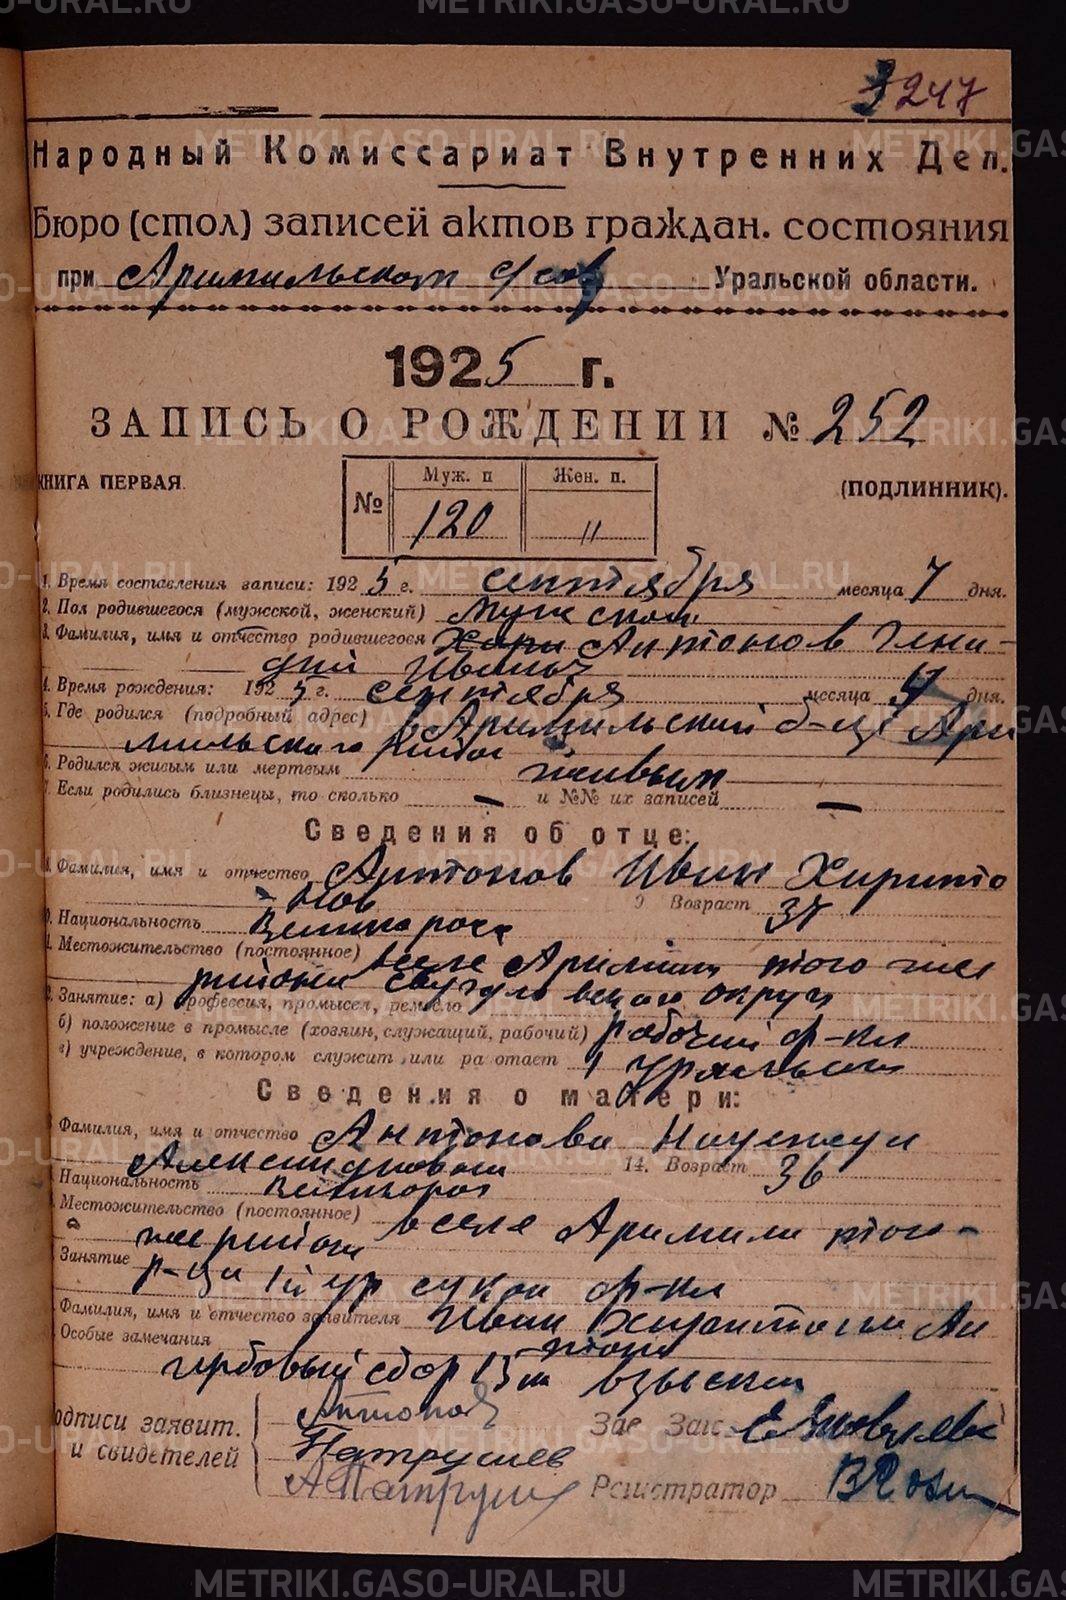 247
Народный Комиссариат Внутренних Дел.
Бюро (стол) записей актов граждан. состояния
при Арамильском с/сов Уральской области.
1925 г.
ЗАПИСЬ О РОЖДЕНИИ № 252
КНИГА ПЕРВАЯ. (ПОДЛИННИК).
№ Муж. п Жен. п.
120 "
1. Время составления записи: 1925 г. сентября месяца 7 дня.
2. Пол родившегося (мужской, женский) Мужской
3. Фамилия, имя и отчество родившегося Антонов Гена-
дий Иваныч
4. Время рождения: 1925 г. сентября месяца дня.
5. Где родился (подробный адрес) в Арамильский б-це Ара
мильского район
6. Родился живым или мертвым живым
7. Если родились близнецы, то сколько — и №№ их записей —
Сведения об отце:
8. Фамилия, имя и отчество Антонов Иван Харито
нов 9 Возраст 37
10. Национальность Великоросс
11. Местожительство (постоянное) в селе Арамили того же
района округа
12. Занятие: а) профессия, промысел, ремесло
б) положение в промысле (хозяин, служащий, рабочий) рабочий ф-ки
в) учреждение, в котором служит или ра отает 1 Уральская
Сведения о матери:
Фамилия, имя и отчество Антонова Надежда
Александровна 14. Возраст 36
Национальность великоросс
Местожительство (постоянное) в селе Арамили того-
же района
Занятие р-ца 1й ур сукон ф-ки
Фамилия, имя и отчество заявителя Иван Харитонов Ан
тонов
Особые замечания
гербовый сбор 15 к взыскан
одписи заявит. Антонов Зав Загс Яковлев
и свидетелей Патрушев
А Патруш Регистратор
METRIKI.GASO-URAL.RU